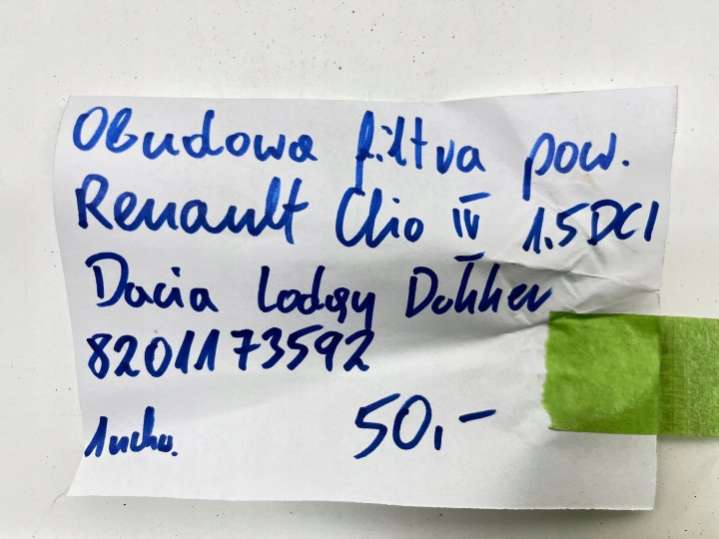 Obudowa filtra pow.
Renault Clio IV 1.5DCI
Dacia Lodgy Dokker
8201173592
1 ucho. 50,-